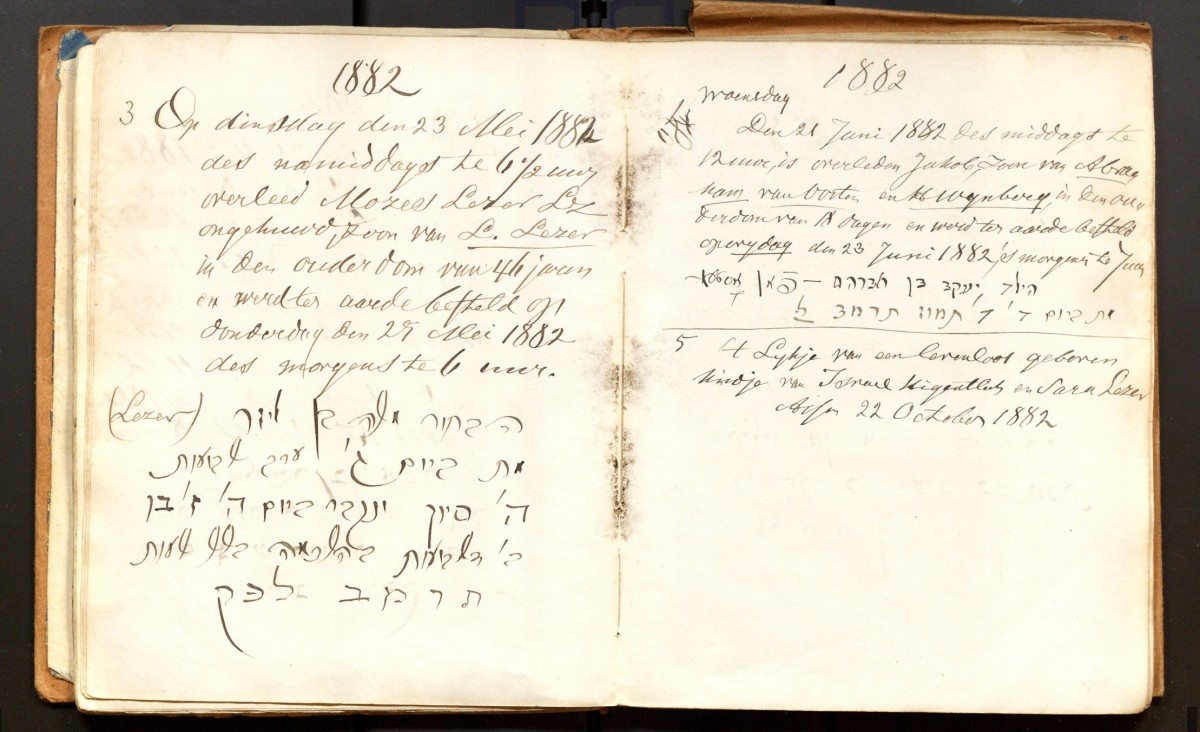 1882
3 Op dinsdag den 23 Mei 1882
des namiddags te 6 1/2 uur
overleed Mozes Lezer Lz
ongehuwd, zoon van L. Lezer
in den ouderdom van 46 jaren
en werd ter aarde besteld op
donderdag den 25 Mei 1882
des morgens te 6 uur.
(Lezer) הבחור משה בן ליזר
מת ביום ג' ערב שבועות
ה' סיון ונקבר ביום ה' ז' בו
ב' דשבועות בהשכמה בשש שעות
תרמב לפק
1882
Woensdag
Den 21 Juni 1882 des middags te
12 uur, is overleden Jakob, Zoon van Abra
ham van Oosten en H Wynberg, in den ou
derdom van 18 dagen en werd ter aarde besteld
op vrydag den 23 Juni 1882, 's morgens te 7 uur
הילד יעקב בן אברהם
מת ביום ד' ד' תמוז תרמב ל
5 Lykje van een levenloos geboren
kindje van Israel en Sara Lezer
22 October 1882